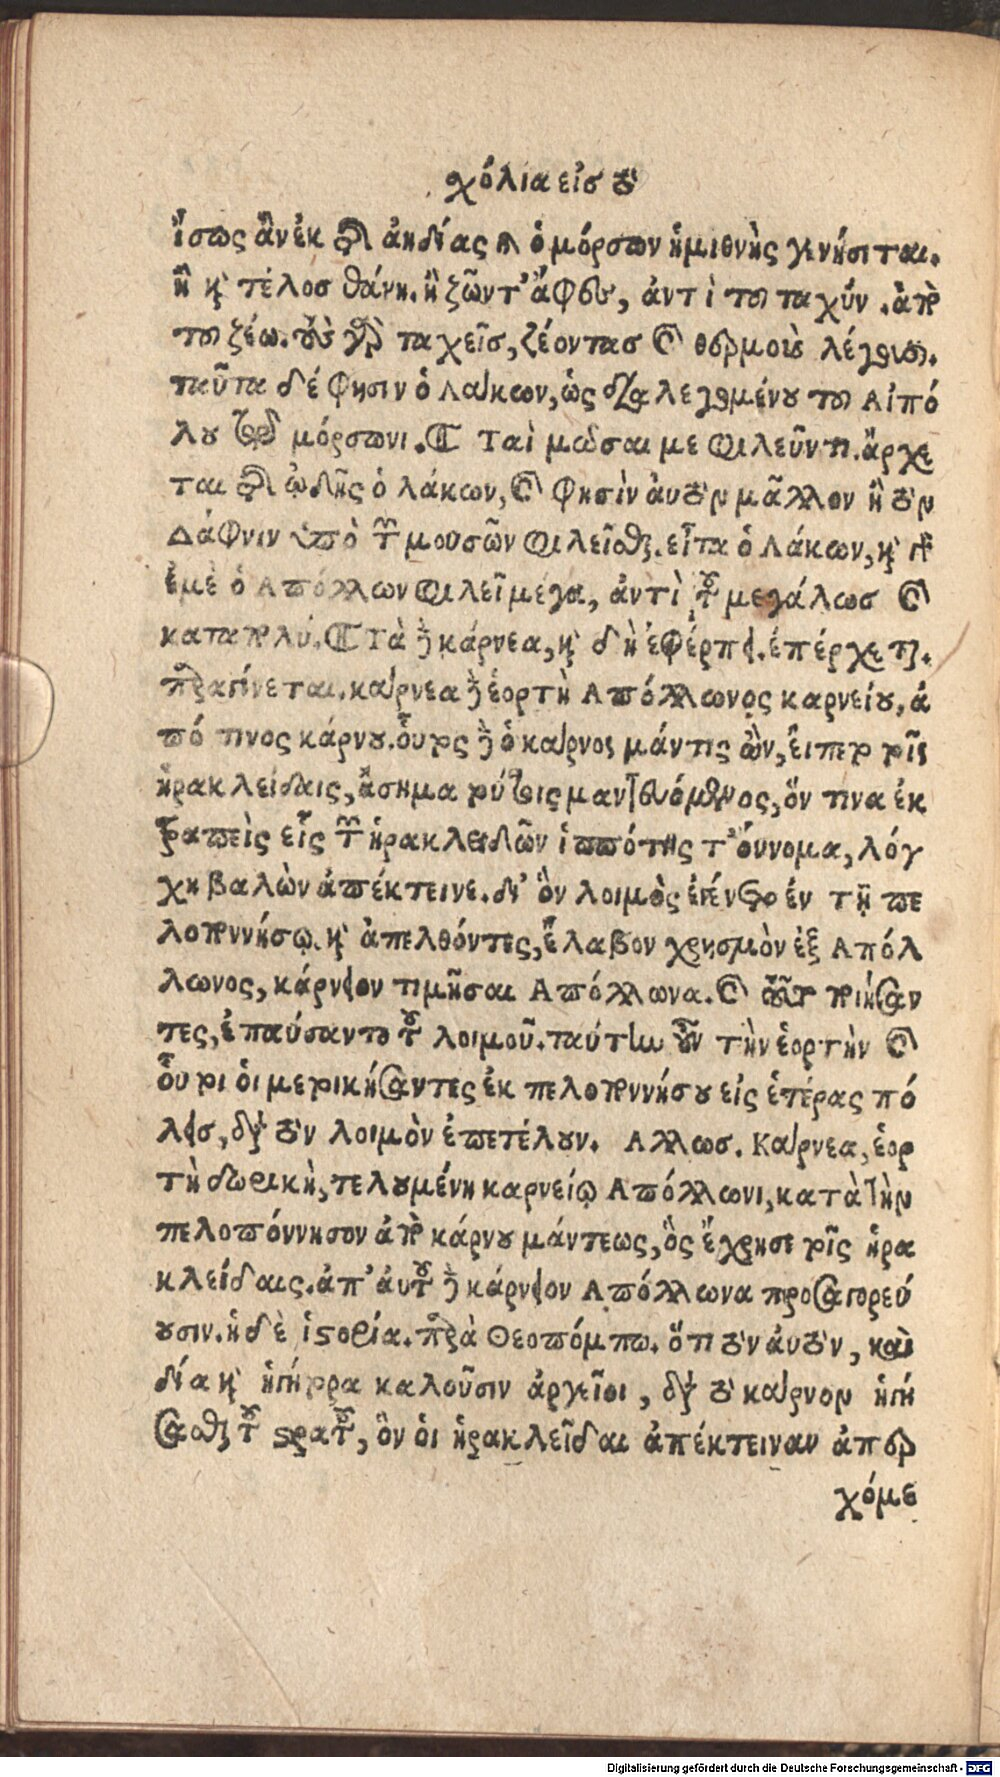 χόλια εἰσ τὸ
ἴσως ἂν ἐκ τῆς ἀηδίας καὶ ὁ μόρσων ἡμιθνὴς γενήσεται.
ἢ καὶ τέλοσ θάνῃ. ἢ ζῶντ' ἄφες, ἀντὶ του ταχύν. ἀπὸ
του ζέω. τοὺς γὰρ ταχεῖσ, ζέοντασ καὶ θερμοὺς λέγουσι.
ταῦτα δέ φησιν ὁ Λάκων, ὡς διαλεγομένου του Αἰπό
λου τῷ μόρσωνι. ¶ Ταὶ μῶσαι με φιλεῦντι. ἄρχε
ται τῆς ᾠδῆς ὁ λάκων, καὶ φησὶν αὐτὸν μᾶλλον ἢ τὸν
Δάφνιν ὑπὸ τῶν μουσῶν φιλεῖσθαι. εἶτα ὁ Λάκων, καὶ γὰρ
ἐμὲ ὁ Απόλλων φιλεῖ μέγα, ἀντὶ τοῦ μεγάλωσ καὶ
καταπολύ. ¶ Τὰ δὲ κάρνεα, καὶ δὴ ἐφέρπει. ἐπέρχεται.
παραγίνεται. κάρνεα δὲ ἑορτὴ Απόλλωνος καρνείου, ἀ
πό τινος κάρνου. οὗτος δὲ ὁ κάρνος μάντις ὢν, εἵπετο τοῖς
ἡρακλείδαις, ἄσημα τούτοις μαντευόμενος, ὅν τινα ἐκ
τραπεὶς εἷς τῶν ἡρακλειδῶν ἱππότης τ' οὔνομα, λόγ
χῃ βαλὼν ἀπέκτεινε. δι' ὃν λοιμὸς ἐγένετο ἐν τῇ πε
λοποννήσῳ. καὶ ἀπελθόντες, ἔλαβον χρησμὸν ἐξ Απόλ
λωνος, κάρνειον τιμῆσαι Απόλλωνα. καὶ τοῦτο ποιήσαν
τες, ἐπαύσαντο τοῦ λοιμοῦ. ταύτην οὖν τὴν ἑορτὴν καὶ
οὗτοι οἱ μετοικήσαντες ἐκ πελοποννήσου εἰς ἑτέρας πό
λεισ, διὰ τὸν λοιμὸν ἐπετέλουν. Αλλωσ. Κάρνεα, ἑορ
τὴ δωρικὴ, τελουμένη καρνείῳ Απόλλωνι, κατὰ τὴν
πελοπόννησον ἀπὸ κάρνου μάντεως, ὃς ἔχρησε τοῖς ἡρα
κλείδαις. ἀπ' αὐτοῦ δὲ κάρνειον Απόλλωνα προσαγορεύ
ουσιν. ἡ δὲ ἱστορία. παρὰ Θεοπόμπω. ὅτι τὸν αὐτὸν, καὶ
δία καὶ ἡγήτορα καλοῦσιν ἀργεῖοι, διὰ τὸ κάρνον ἡγή
σασθαι τοῦ στρατοῦ, ὃν οἱ ἡρακλεῖδαι ἀπέκτειναν ἀπερ
χόμε
Digitalisierung gefördert durch die Deutsche Forschungsgemeinschaft - DFG